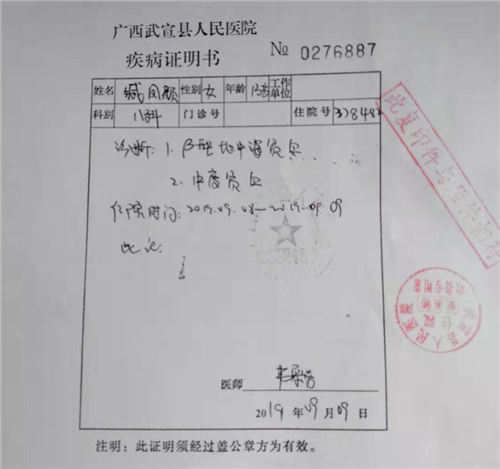 广西武宣县人民医院
疾病证明书
№ 0276887
姓名 性别 女 年龄 13岁 工作单位
科别 儿科 门诊号 住院号 378482
诊断: 1. β型地中海贫血
2. 中度贫血
住院时间: 2019.09.08—2019.09.09
此证
此复印件与原件相符
医师
2019年09月09日
注明:此证明须经过盖公章方为有效。